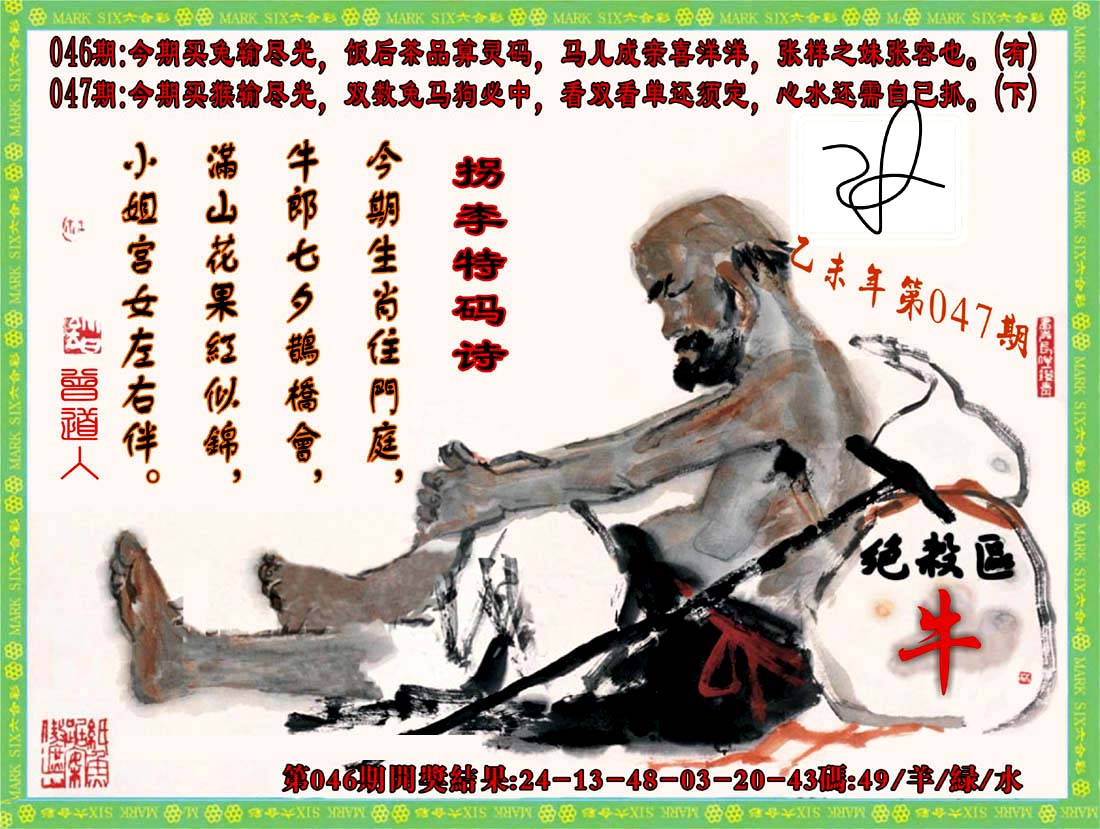 MARK SIX六合彩
046期:今期买兔输尽光，饭后茶品算灵码，马儿成亲喜洋洋，张祥之妹张容也。(有)
047期:今期买猴输尽光，双数兔马狗必中，看双看单还须定，心水还需自已抓。(下)
拐李特码诗
今期生肖住門庭，
牛郎七夕鵲橋會，
滿山花果紅似錦，
小姐宫女左右伴。
曾道人
乙未年第047期
绝殺區
牛
第046期開獎結果:24-13-48-03-20-43碼:49/羊/緑/水